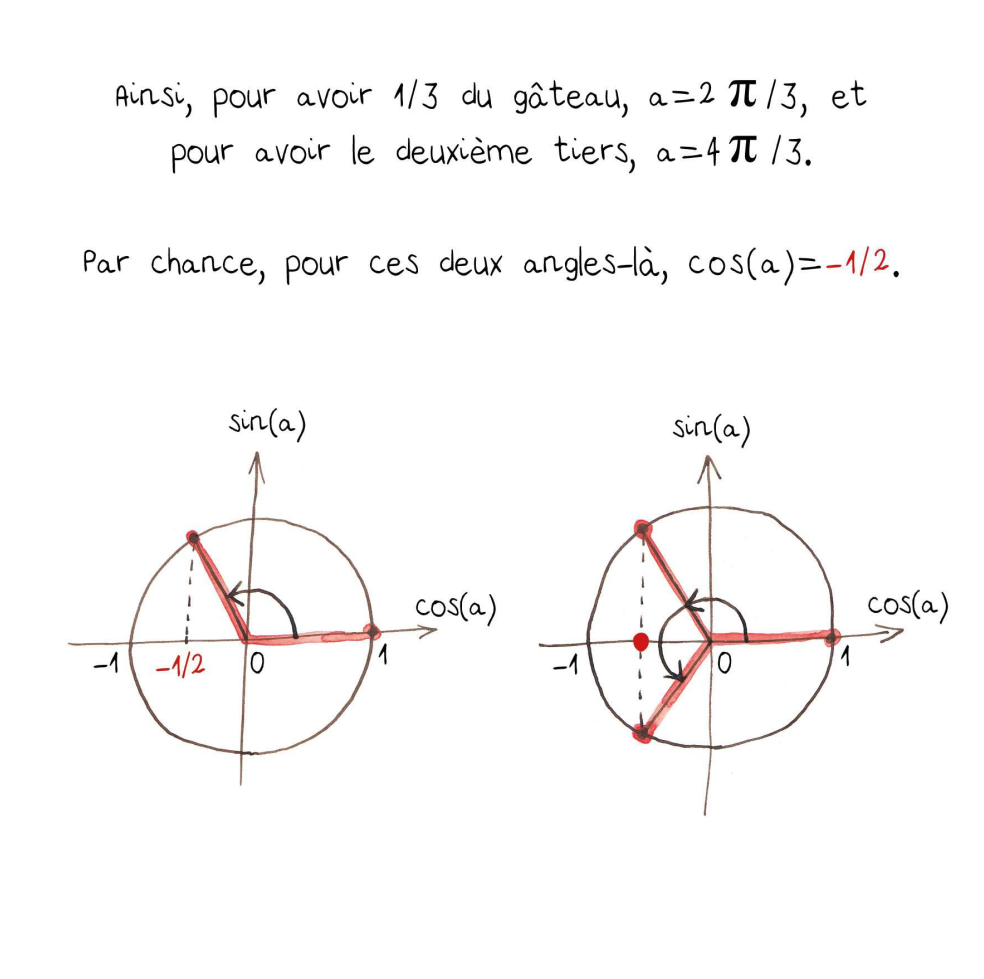 Ainsi, pour avoir 1/3 du gâteau, a=2 π/3, et
pour avoir le deuxième tiers, a=4π /3.
Par chance, pour ces deux angles-là, cos(a)=-1/2.
sin(a)
cos(a)
-1
-1/2
0
1
sin(a)
cos(a)
-1
0
1